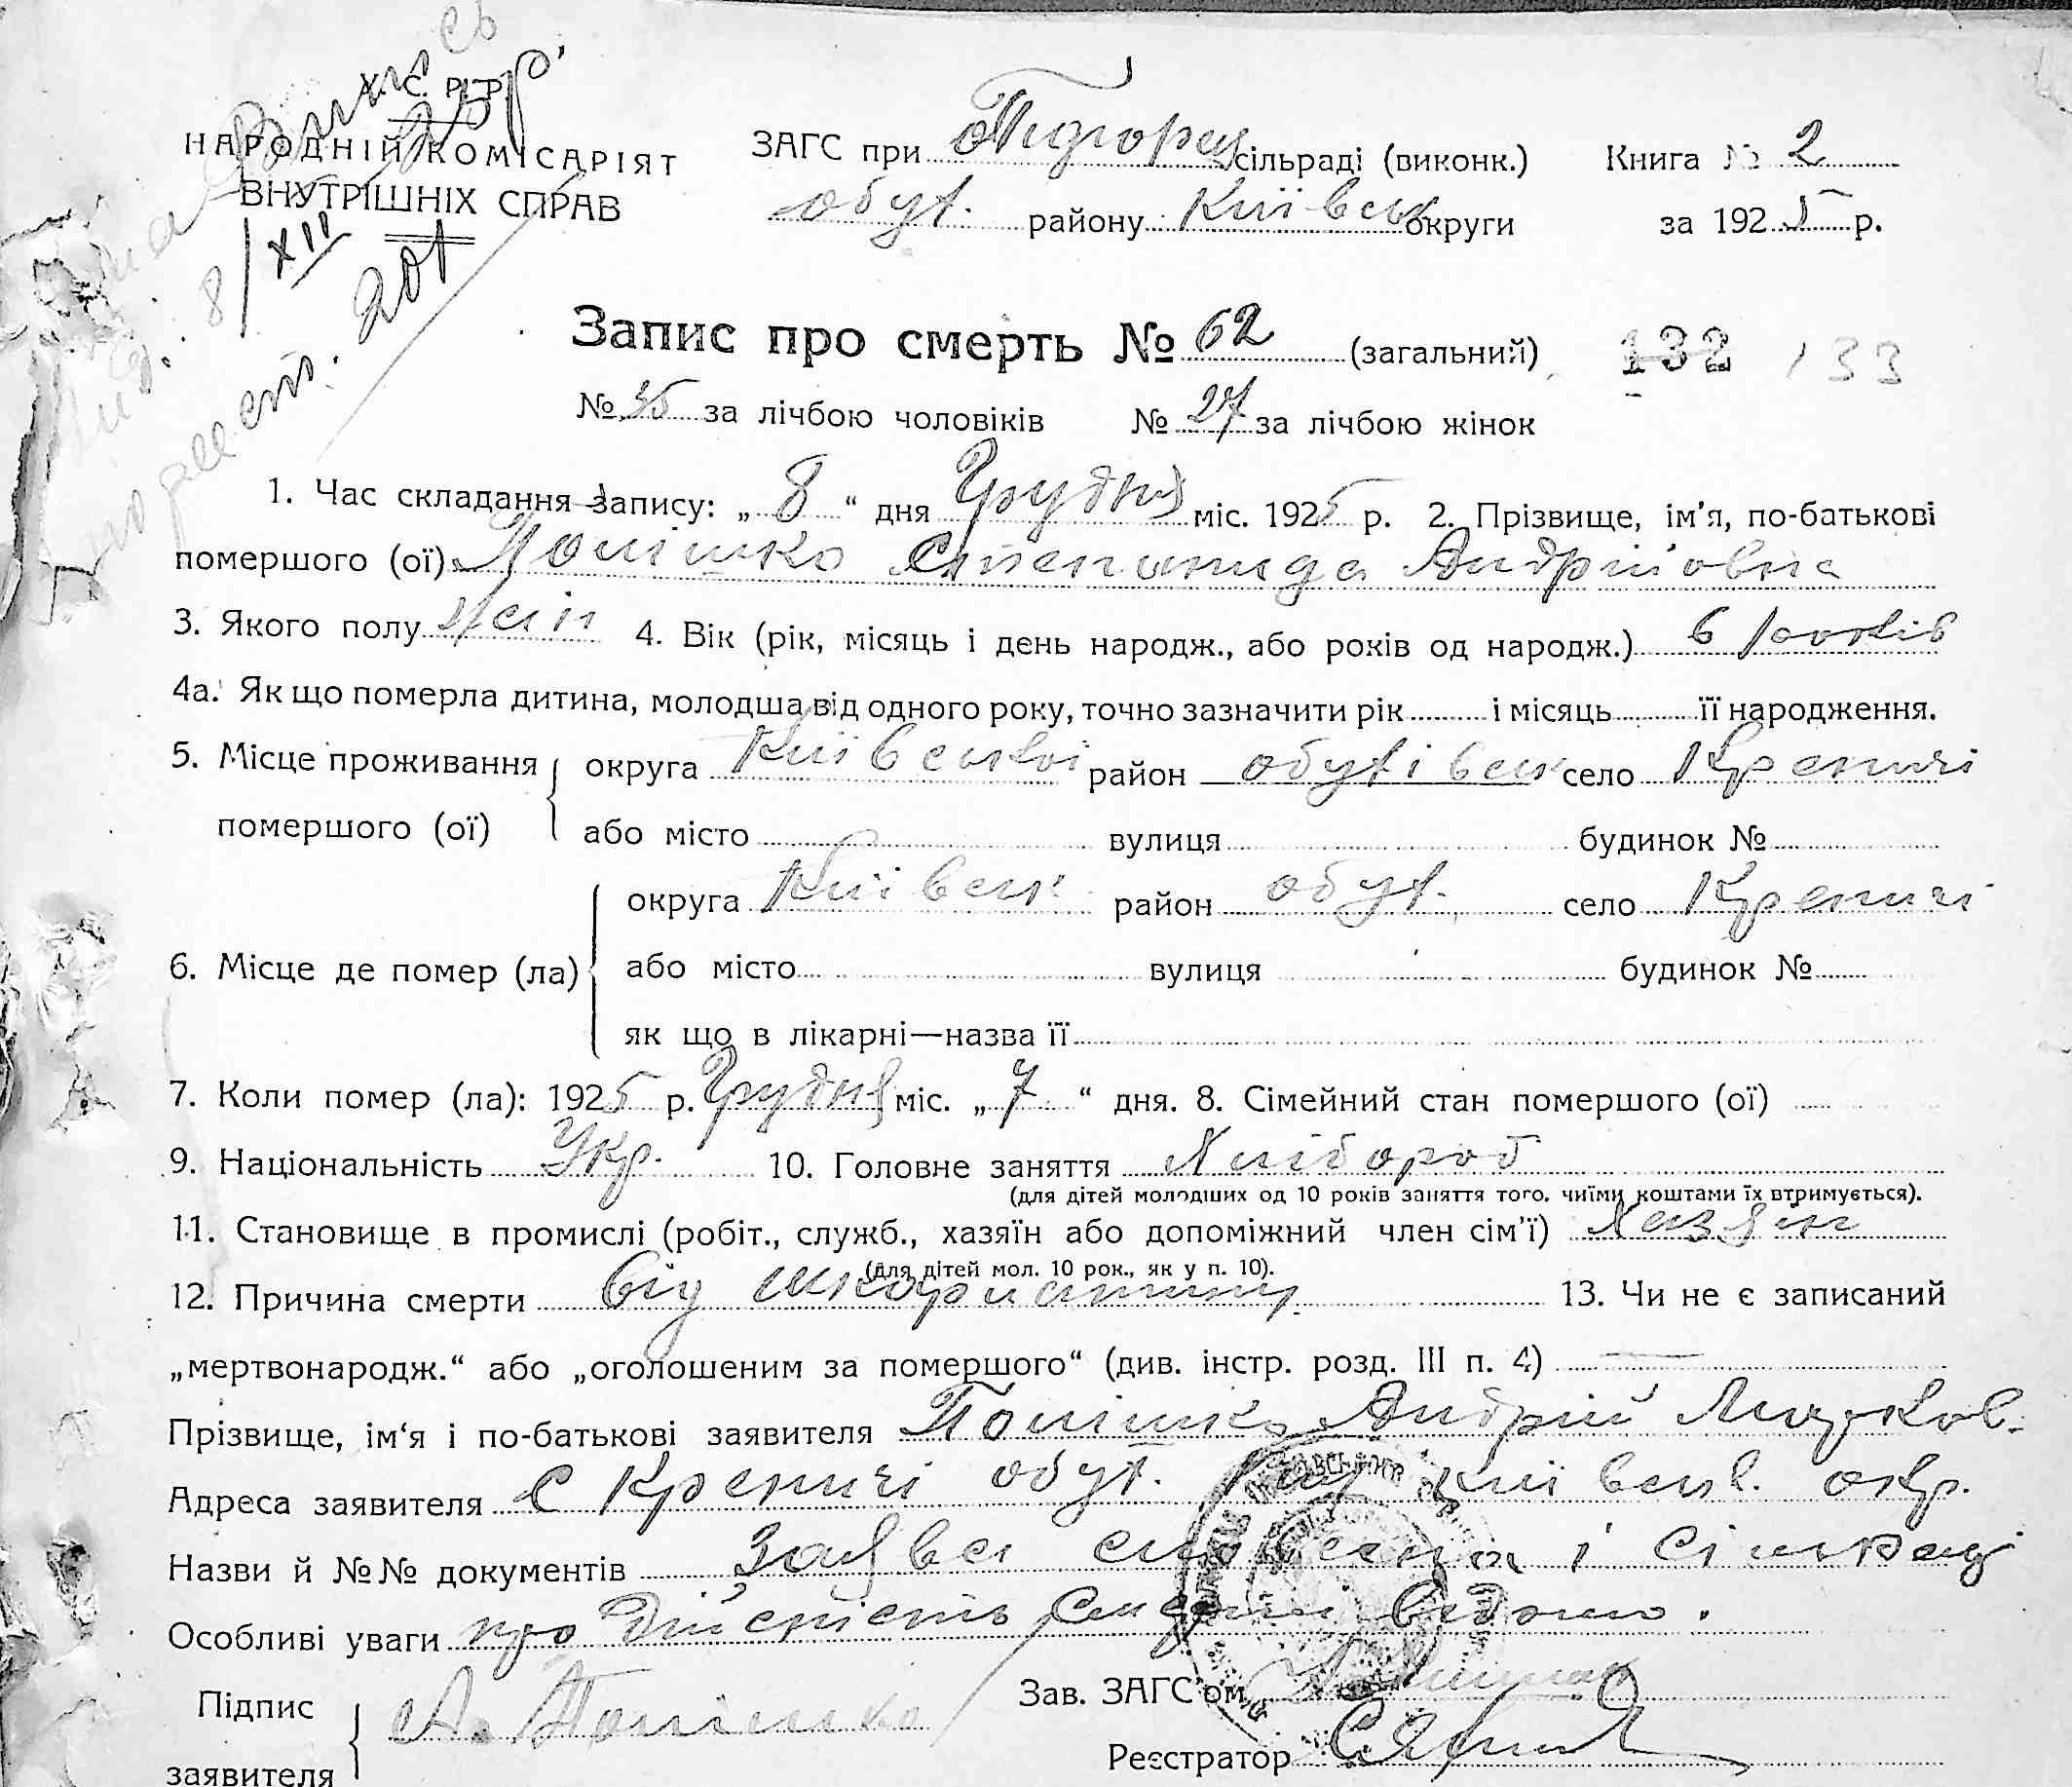 У. С. Р. Р.
НАРОДНІЙ КОМІСАРІЯТ
ВНУТРІШНІХ СПРАВ
8/XII
201
ЗАГС при Підгорец сільраді (виконк.) Книга № 2
обух. району Київськ округи за 1925 р.
Запис про смерть № 62 (загальний) 132 133
№ 35 за лічбою чоловіків № 27 за лічбою жінок
1. Час складання запису: „ 8 “ дня Грудня міс. 1925 р. 2. Прізвище, ім'я, по-батькові
помершого (ої) Андрійовна
3. Якого полу жін 4. Вік (рік, місяць і день народж., або років од народж.) 6
4а. Як що померла дитина, молодша від одного року, точно зазначити рік і місяць її народження.
5. Місце проживання округа Київської район обухівськ село Креничі
помершого (ої) або місто вулиця будинок №
округа Київськ район обух. село Креничі
6. Місце де помер (ла) або місто вулиця будинок №
як що в лікарні—назва її
7. Коли помер (ла): 1925 р. Грудня міс. „ 7 “ дня. 8. Сімейний стан помершого (ої)
9. Національність Укр. 10. Головне заняття Хлібороб
(для дітей молодших од 10 років заняття того, чиїми коштами їх втримується).
11. Становище в промислі (робіт., служб., хазяїн або допоміжний член сім'ї) Хазяїн
(для дітей мол. 10 рок., як у п. 10).
12. Причина смерти від шкарлатини 13. Чи не є записаний
„мертвонародж.“ або „оголошеним за помершого“ (див. інстр. розд. III п. 4) —
Прізвище, ім'я і по-батькові заявителя Андрій
Адреса заявителя с Креничі обух. Київськ. окр.
Назви й №№ документів Заява словесна і сільрад
Особливі уваги про дійсність смерти відомо.
Підпис А. Зав. ЗАГС'ом
заявителя Реєстратор